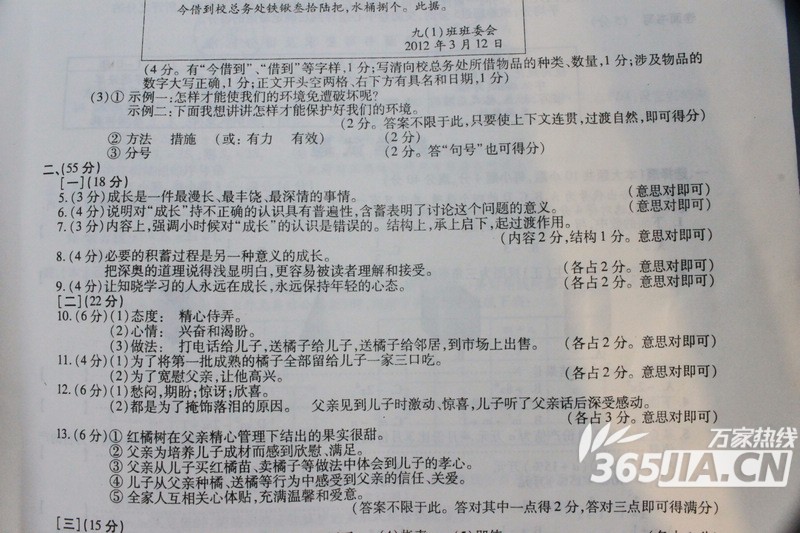 今借到校总务处铁锹叁拾陆把,水桶捌个。此据。
九(1)班班委会
2012年3月12日
(4分。有“今借到”、“借到”等字样,1分;写清向校总务处所借物品的种类、数量,1分;涉及物品的
数字大写正确,1分;正文开头空两格、右下方有具名和日期,1分)
(3)① 示例一:怎样才能使我们的环境免遭破坏呢?
示例二:下面我想讲讲怎样才能保护好我们的环境。
(2分。答案不限于此,只要使上下文连贯,过渡自然,即可得分)
② 方法 措施 (或:有力 有效) (2分)
③ 分号 (2分。答“句号”也可得分)
二、(55分)
[一](18分)
5.(3分)成长是一件最漫长、最丰饶、最深情的事情。 (意思对即可)
6.(4分)说明对“成长”持不正确的认识具有普遍性,含蓄表明了讨论这个问题的意义。 (意思对即可)
7.(3分)内容上,强调小时候对“成长”的认识是错误的。结构上,承上启下,起过渡作用。
(内容2分,结构1分。意思对即可)
8.(4分)必要的积蓄过程是另一种意义的成长。
把深奥的道理说得浅显明白,更容易被读者理解和接受。 (各占2分。意思对即可)
9.(4分)让知晓学习的人永远在成长,永远保持年轻的心态。 (各占2分。意思对即可)
[二](22分)
10.(6分)(1)态度: 精心侍弄。
(2)心情: 兴奋和渴盼。
(3)做法: 打电话给儿子,送橘子给儿子,送橘子给邻居,到市场上出售。 (各占2分。意思对即可)
11.(4分)(1)为了将第一批成熟的橘子全部留给儿子一家三口吃。
(2)为了宽慰父亲,让他高兴。 (各占2分。意思对即可)
12.(6分)(1)愁闷,期盼;惊讶;欣喜。
(2)都是为了掩饰落泪的原因。 父亲见到儿子时激动、惊喜,儿子听了父亲话后深受感动。
(各占3分。意思对即可)
13.(6分)① 红橘树在父亲精心管理下结出的果实很甜。
② 父亲为培养儿子成材而感到欣慰、满足。
③ 父亲从儿子买红橘苗、卖橘子等做法中体会到儿子的孝心。
④ 儿子从父亲种橘、送橘等行为中感受到父亲的信任、关爱。
⑤ 全家人互相关心体贴,充满温馨和爱意。
(答案不限于此。答对其中一点得2分,答对三点即可得满分)
[三](15分)
万家热线
365JIA.CN